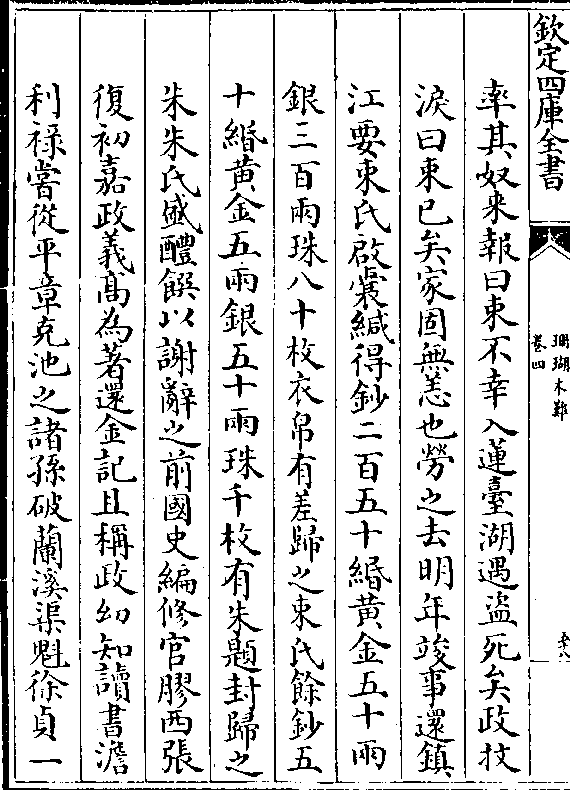 欽定四庫全書
珊瑚木難
卷四
率其奴来報曰東不幸入蓮臺湖遇盜死矣政抆
淚曰東已矣家固無恙也勞之去明年竣事還鎮
江要東氏啟囊緘得鈔二百五十緡黃金五十兩
銀三百兩珠八十枚衣帛有差歸之東氏餘鈔五
十緡黃金五兩銀五十兩珠千枚有朱題封歸之
朱朱氏盛醴饌以謝辭之前國史編修官膠西張
復初嘉政義髙為著還金記且稱政幼知讀書澹
利祿嘗從平章克池之諸孫破蘭溪渠魁徐貞一